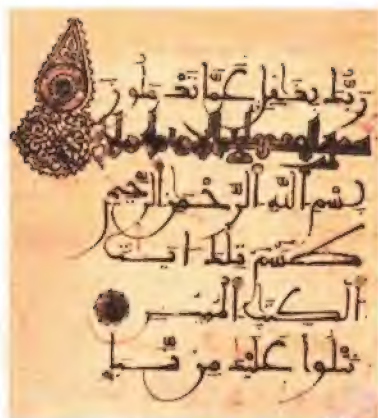 رَبُّكَ بِغَفِلٍ عَمَّا تَعْمَلُونَ
بِسْمِ اللَّهِ الرَّحْمَنِ الرَّحِيمِ
طسم تلك ايت
الكتب المبين
نتلوا عليك من نبإ